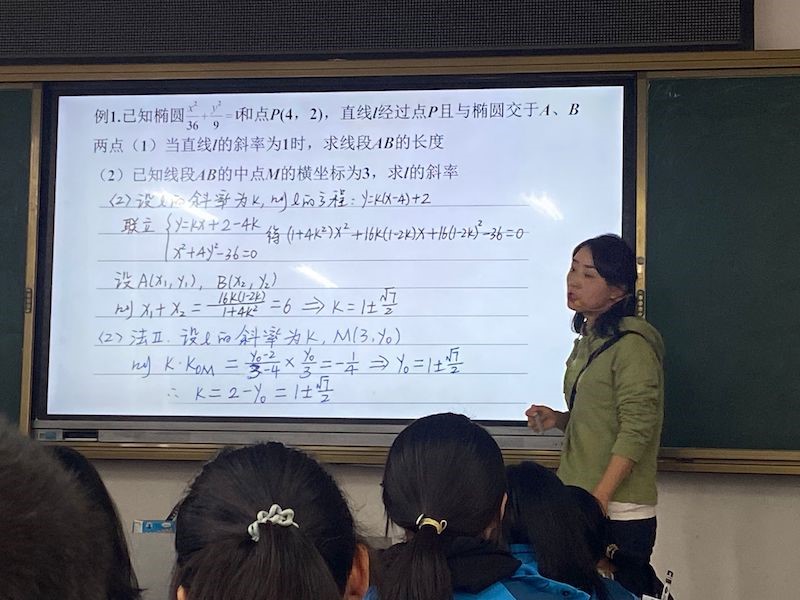 例1.已知椭圆x²/36+y²/9=1和点P(4，2)，直线l经过点P且与椭圆交于A、B
两点（1）当直线l的斜率为1时，求线段AB的长度
（2）已知线段AB的中点M的横坐标为3，求l的斜率
(2) 设l的斜率为k,则l的方程:y=k(x-4)+2
联立{y=kx+2-4k 得(1+4k²)x²+16k(1-2k)x+16(1-2k)²-36=0
x²+4y²-36=0
设A(x₁,y₁), B(x₂,y₂)
则 x₁+x₂=-16k(1-2k)/(1+4k²)=6 ⇒ k=1±√7/2
(2) 法Ⅱ. 设l的斜率为k, M(3,y₀)
则 k·kOM=(y₀-2)/(3-4)×y₀/3=-1/4 ⇒ y₀=1±√7/2
∴ k=2-y₀=1±√7/2